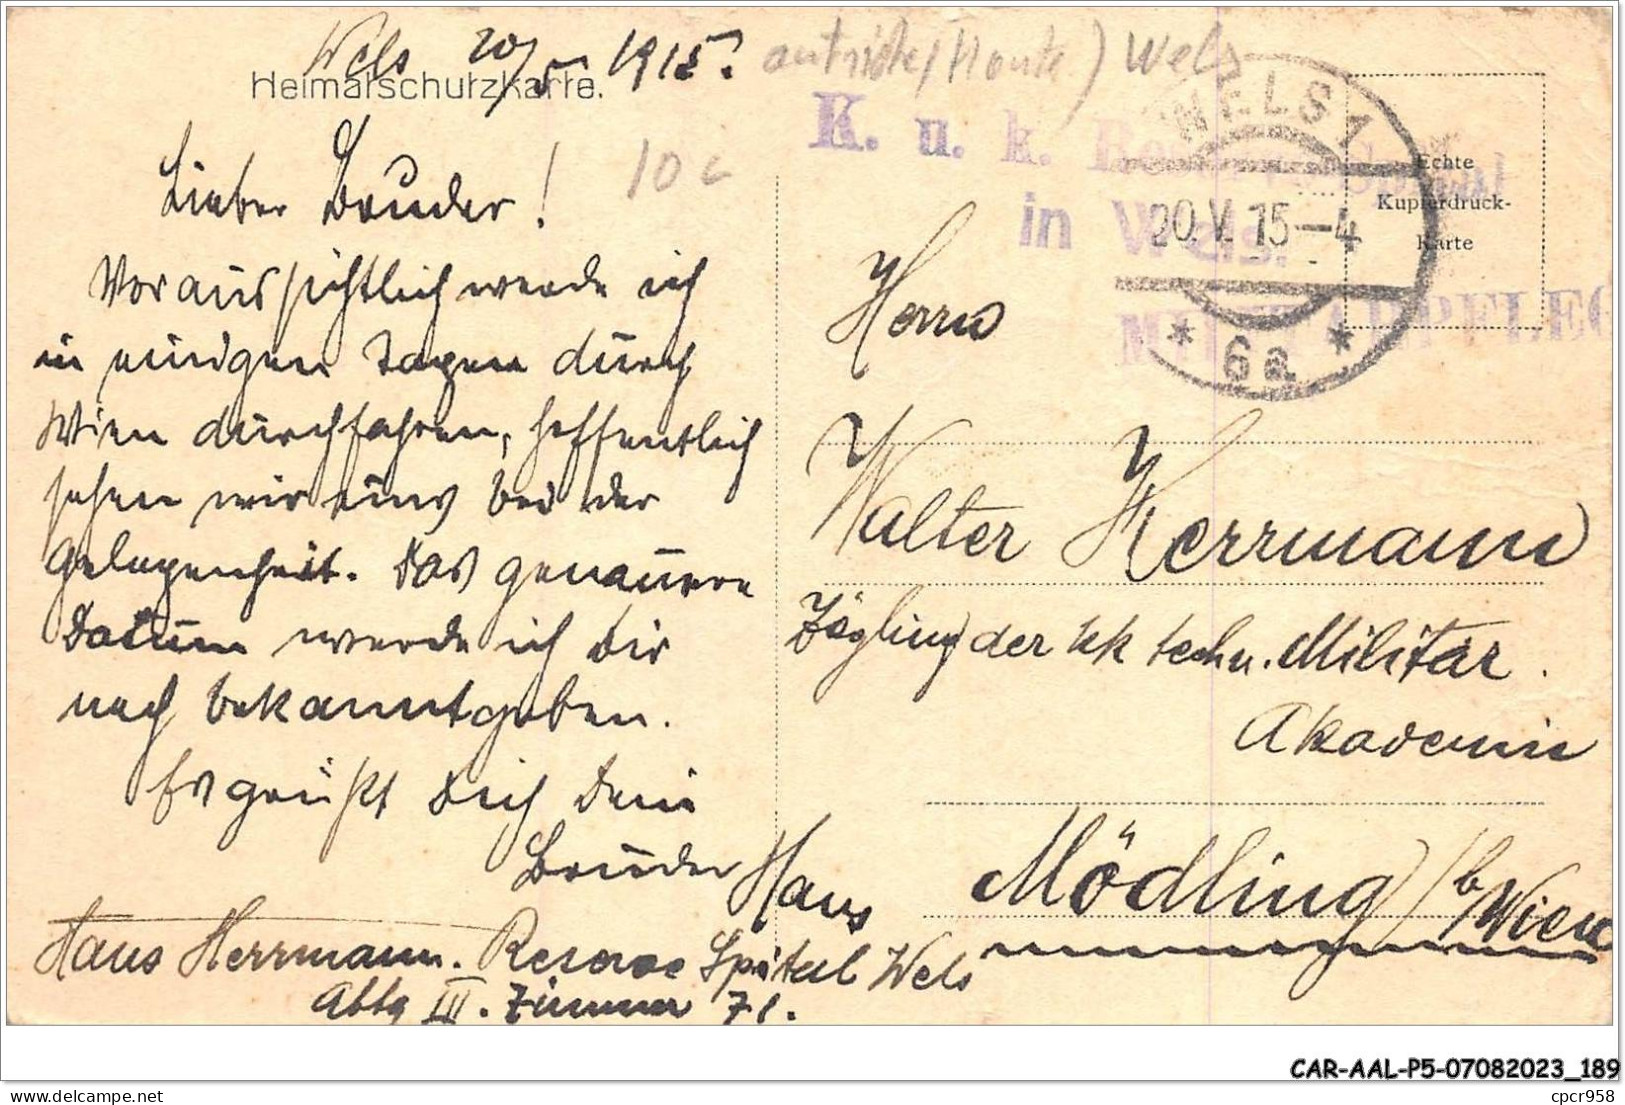 Wels 20/5 1915.
Heimatschutzkarte.
Lieber Bruder!
Voraussichtlich werde ich
in einigen Tagen durch
Wien durchfahren, hoffentlich
sehen wir uns bei der
Gelegenheit. Das genauere
Datum werde ich Dir
noch bekanntgeben.
Es grüßt Dich Dein
Bruder Hans
Hans Herrmann. Reserve Spital Wels
Abtlg III. Zimmer 71.
10 c
Wels
K. u. k. Reserve-Spital
in Wels.
MILITÄRPFLEG
WELS 1
20.V.15-4
* 6a *
Echte
Kupferdruck-
Karte
Herrn
Walter Herrmann
Zögling der kk techn. Militär.
Akademie
Mödling / b Wien
CAR-AAL-P5-07082023_189
delcampe.net
cpcr958